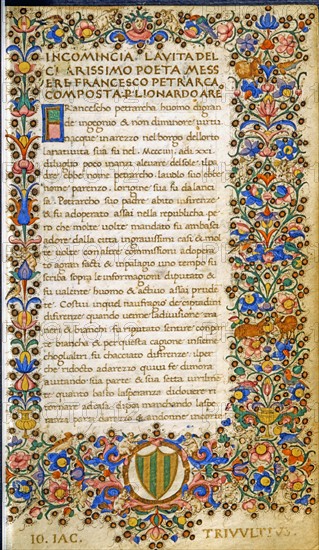 INCOMINCIA LAVITA DEL
CLARISSIMO POETA MESS
ERE FRANCESCO PETRARCA
COMPOSTA P LIONARDO ARE
FRancescho petrarcha huomo digran
de ingegnio & non diminore uirtu
nacque inarezzo nel borgo dellorto
lanatiuita sua fu nel. Mccciiii. adi xxi.
diluglio poco inanzi alleuare del sole. Ilpa
dre ebbe nome petracho. lauolo suo ebbe
nome parenzo. lorigine sua fu da lanci
sa. Petracho suo padre abito infirenze
& fu adoperato assai nella republicha. pe
ro che molte uolte mandato fu ambascia
adore dalla citta ingrauissimi casi & mol
te uolte con altre commissioni adoperato
agran facti & inpalagio uno tempo fu
scriba sopra le informagioni diputato &
fu ualente huomo & actiuo assai prude
te. Costui inquel naufragio de cittadini
difirenze quando uenne la diuisione tra
neri & bianchi fu riputato sentire conpar
te biancha & per questa cagione insieme
choglialtri fu chacciato difirenze. ilper
che ridocto adarezzo quiui fe dimora
aiutando sua parte & sua setta uirilme
quanto basto lasperanza di douere ri
tornare adcasa. dipoi mancando laspe
ranza parti darezzo & andonne incorte
IO. IAC. TRIVVLTIVS.